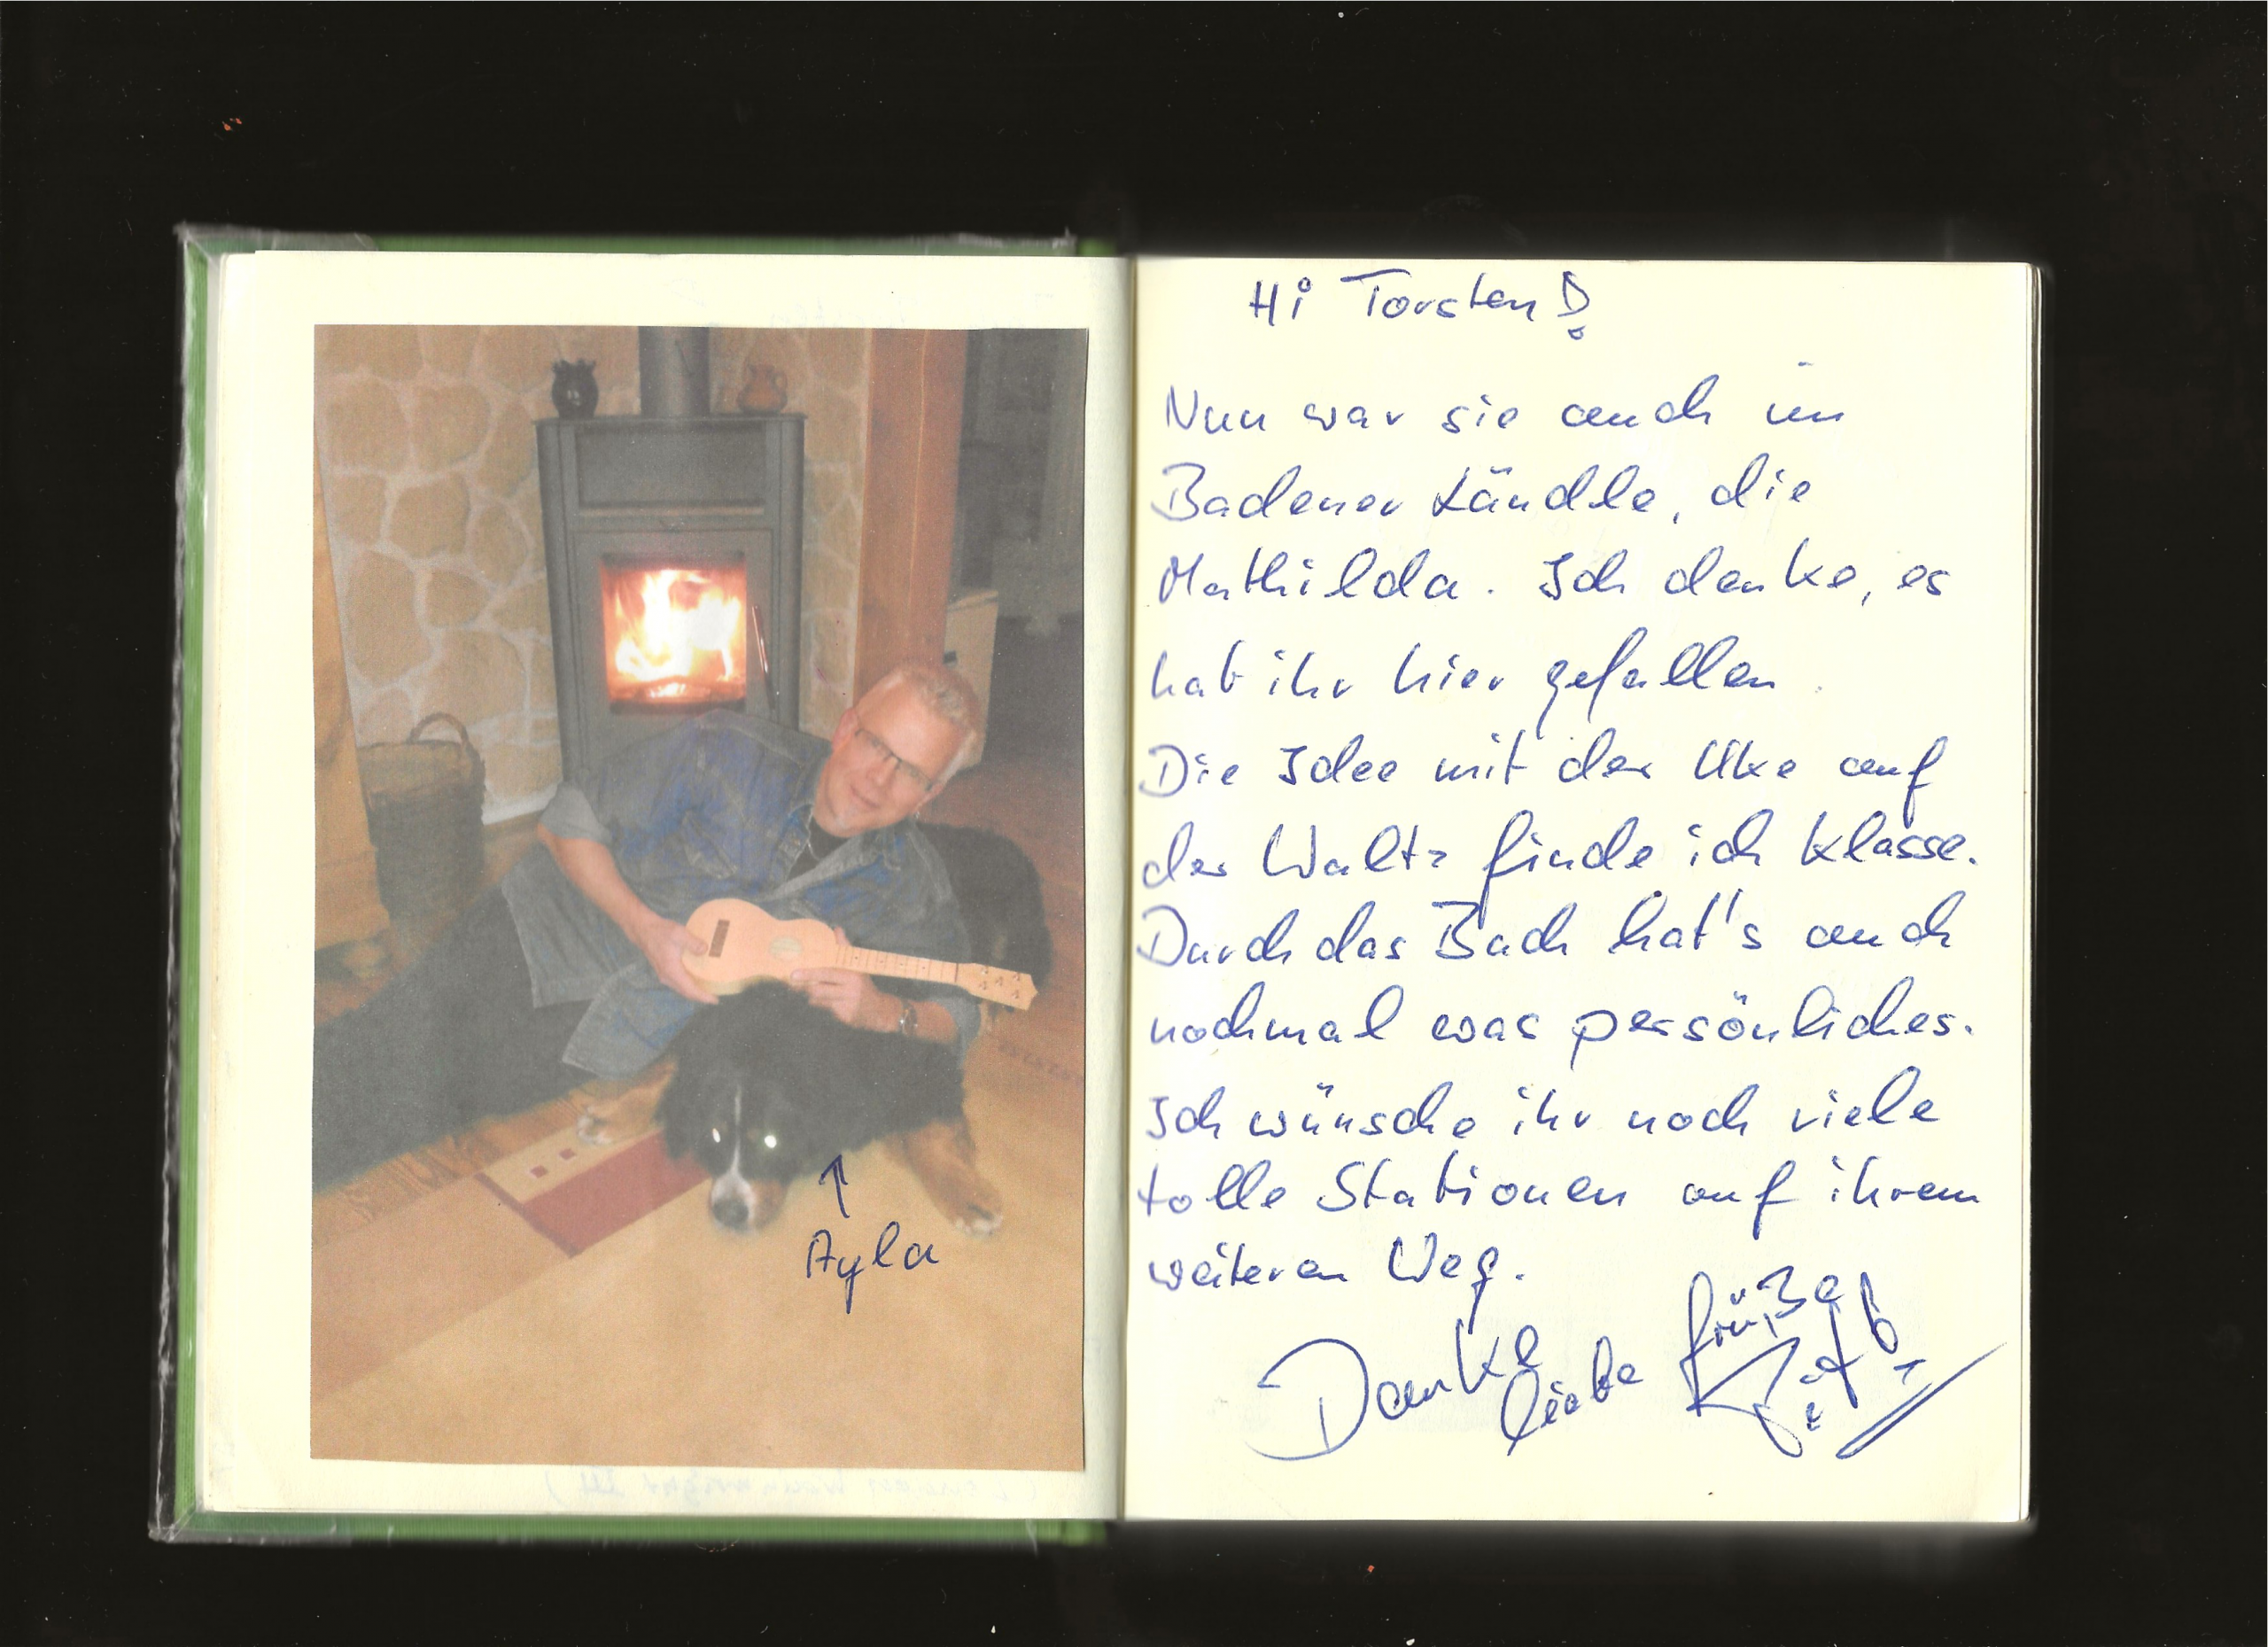 Ayla
Hi Torsten!
Nun war sie auch im
Badener Ländle, die
Mathilda. Ich denke, es
hat ihr hier gefallen.
Die Idee mit der Uke auf
der Waltz finde ich klasse.
Durch das Buch hat's auch
nochmal was persönliches.
Ich wünsche ihr noch viele
tolle Stationen auf ihrem
weiteren Weg.
Danke
liebe Grüße